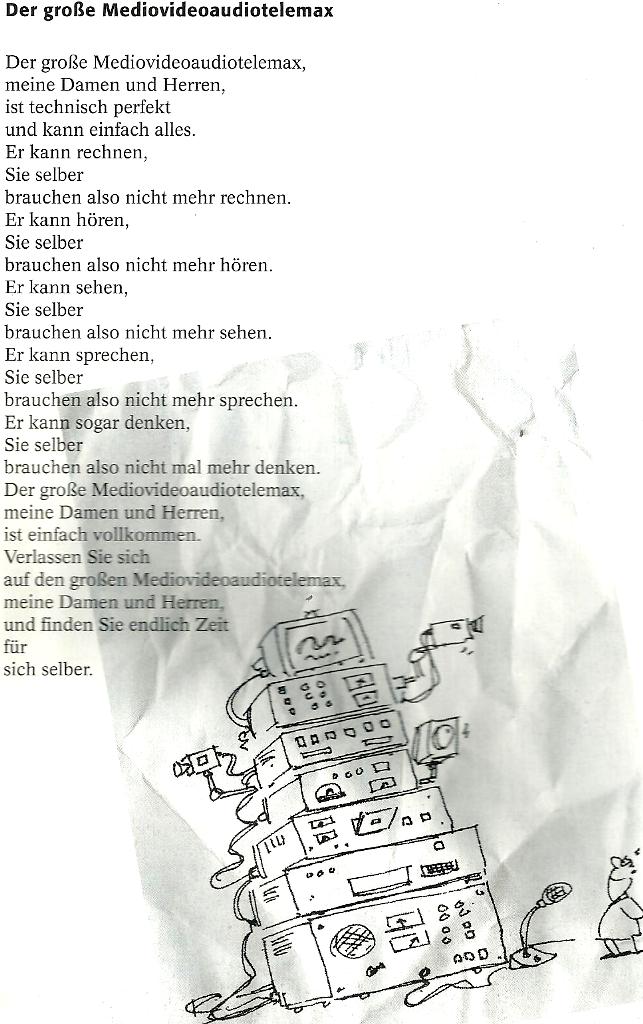 Der große Mediovideoaudiotelemax
Der große Mediovideoaudiotelemax,
meine Damen und Herren,
ist technisch perfekt
und kann einfach alles.
Er kann rechnen,
Sie selber
brauchen also nicht mehr rechnen.
Er kann hören,
Sie selber
brauchen also nicht mehr hören.
Er kann sehen,
Sie selber
brauchen also nicht mehr sehen.
Er kann sprechen,
Sie selber
brauchen also nicht mehr sprechen.
Er kann sogar denken,
Sie selber
brauchen also nicht mal mehr denken.
Der große Mediovideoaudiotelemax,
meine Damen und Herren,
ist einfach vollkommen.
Verlassen Sie sich
auf den großen Mediovideoaudiotelemax,
meine Damen und Herren,
und finden Sie endlich Zeit
für
sich selber.